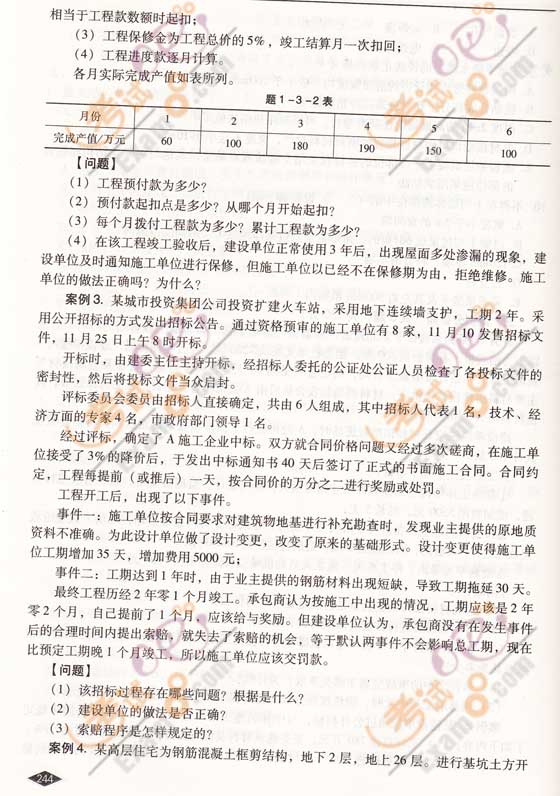 相当于工程款数额时起扣；
（3）工程保修金为工程总价的5%，竣工结算月一次扣回；
（4）工程进度款逐月计算。
各月实际完成产值如表所列。
题1-3-2表
月份 1 2 3 4 5 6
完成产值/万元 60 100 180 190 150 100
【问题】
（1）工程预付款为多少？
（2）预付款起扣点是多少？从哪个月开始起扣？
（3）每个月拨付工程款为多少？累计工程款为多少？
（4）在该工程竣工验收后，建设单位正常使用3年后，出现屋面多处渗漏的现象，建
设单位及时通知施工单位进行保修，但施工单位以已经不在保修期为由，拒绝维修。施工
单位的做法正确吗？为什么？
案例3. 某城市投资集团公司投资扩建火车站，采用地下连续墙支护，工期2年。采
用公开招标的方式发出招标公告。通过资格预审的施工单位有8家，11月10发售招标文
件，11月25日上午8时开标。
开标时，由建委主任主持开标，经招标人委托的公证处公证人员检查了各投标文件的
密封性，然后将投标文件当众启封。
评标委员会委员由招标人直接确定，共由6人组成，其中招标人代表1名，技术、经
济方面的专家4名，市政府部门领导1名。
经过评标，确定了A施工企业中标。双方就合同价格问题又经过多次磋商，在施工单
位接受了3%的降价后，于发出中标通知书40天后签订了正式的书面施工合同。合同约
定，工程每提前（或推后）一天，按合同价的万分之二进行奖励或处罚。
工程开工后，出现了以下事件。
事件一：施工单位按合同要求对建筑物地基进行补充勘查时，发现业主提供的原地质
资料不准确。为此设计单位做了设计变更，改变了原来的基础形式。设计变更使得施工单
位工期增加35天，增加费用5000元；
事件二：工期达到1年时，由于业主提供的钢筋材料出现短缺，导致工期拖延30天。
最终工程历经2年零1个月竣工。承包商认为按施工中出现的情况，工期应该是2年
零2个月，自己提前了1个月，应该给与奖励。但建设单位认为，承包商没有在发生事件
后的合理时间内提出索赔，就失去了索赔的机会，等于默认两事件不会影响总工期，现在
比预定工期晚1个月竣工，所以施工单位应该交罚款。
【问题】
（1）该招标过程存在哪些问题？根据是什么？
（2）建设单位的做法是否正确？
（3）索赔程序是怎样规定的？
案例4. 某高层住宅为钢筋混凝土框剪结构，地下2层，地上26层。进行基坑土方开
244